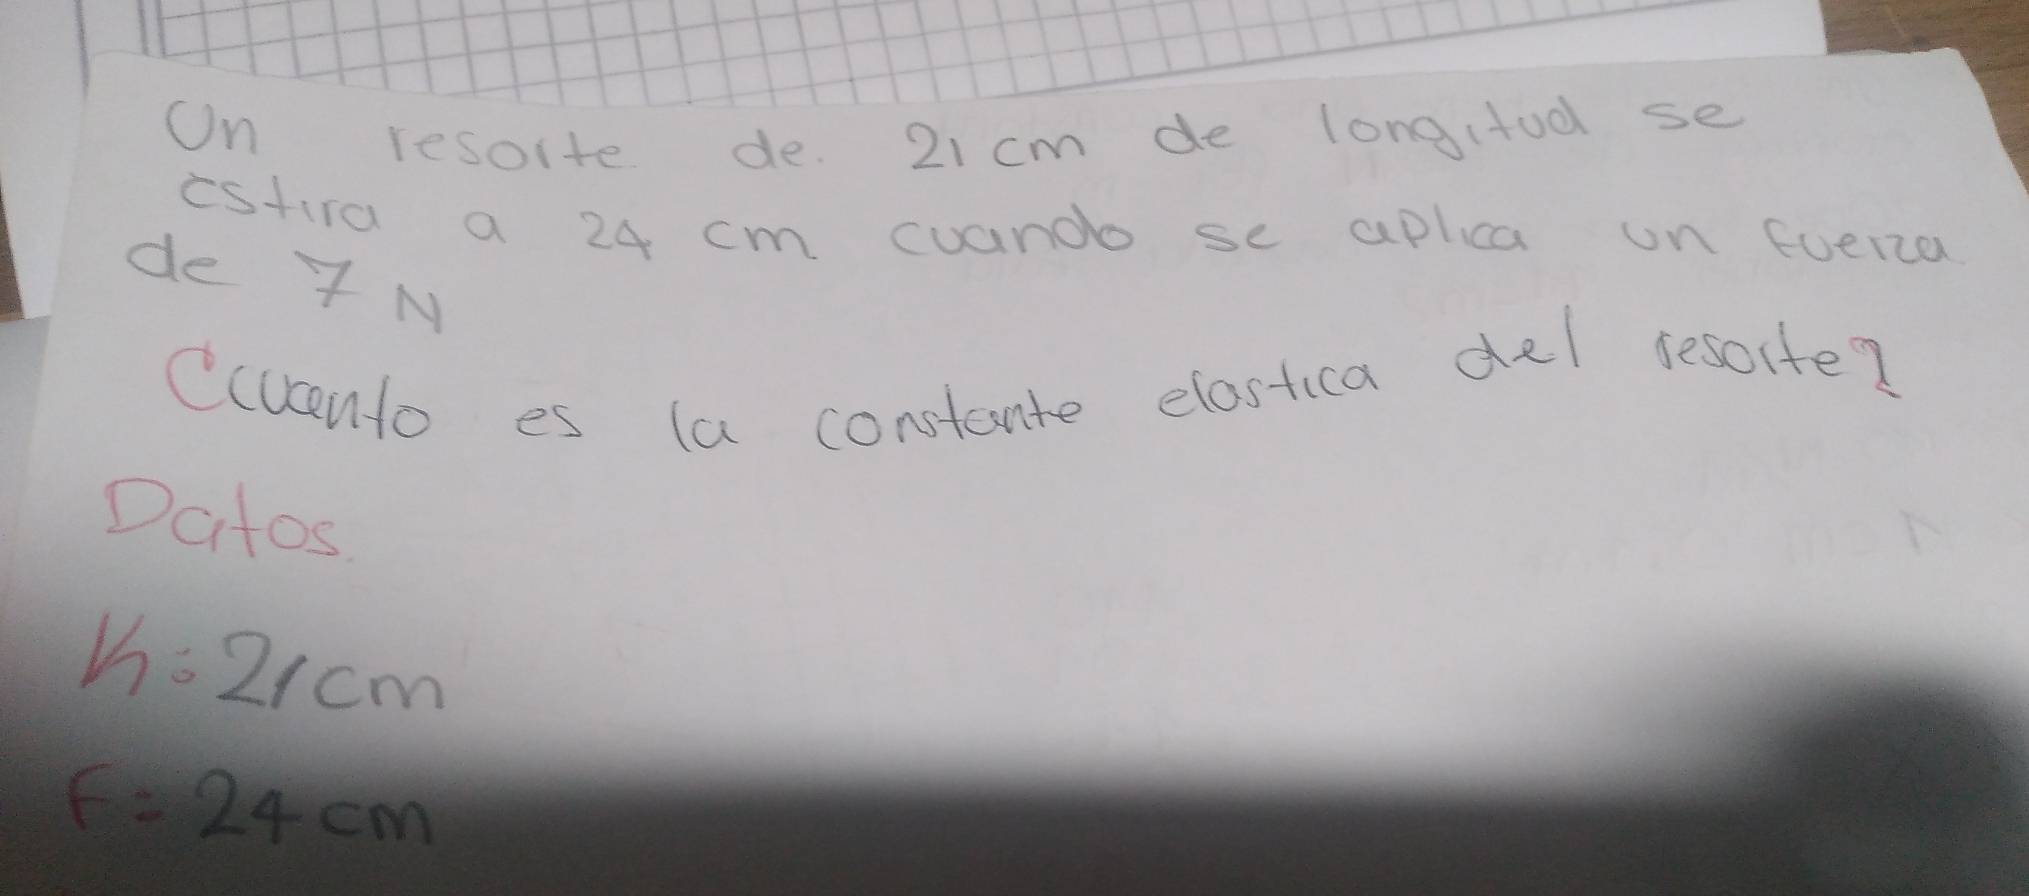 Un resorte de. 21 cm de longitud se
estira a 24 cm cuando se aplica un fuerza
de 7 N
Ccuanto es la constante elastica del resorte?
Datos.
K: 21cm
F= 24 cm